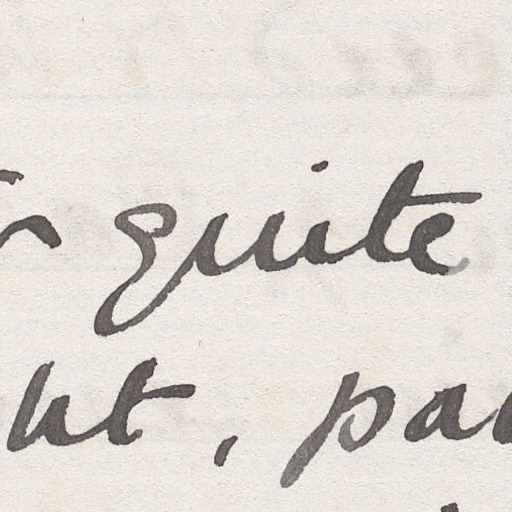 quite
ht, pa